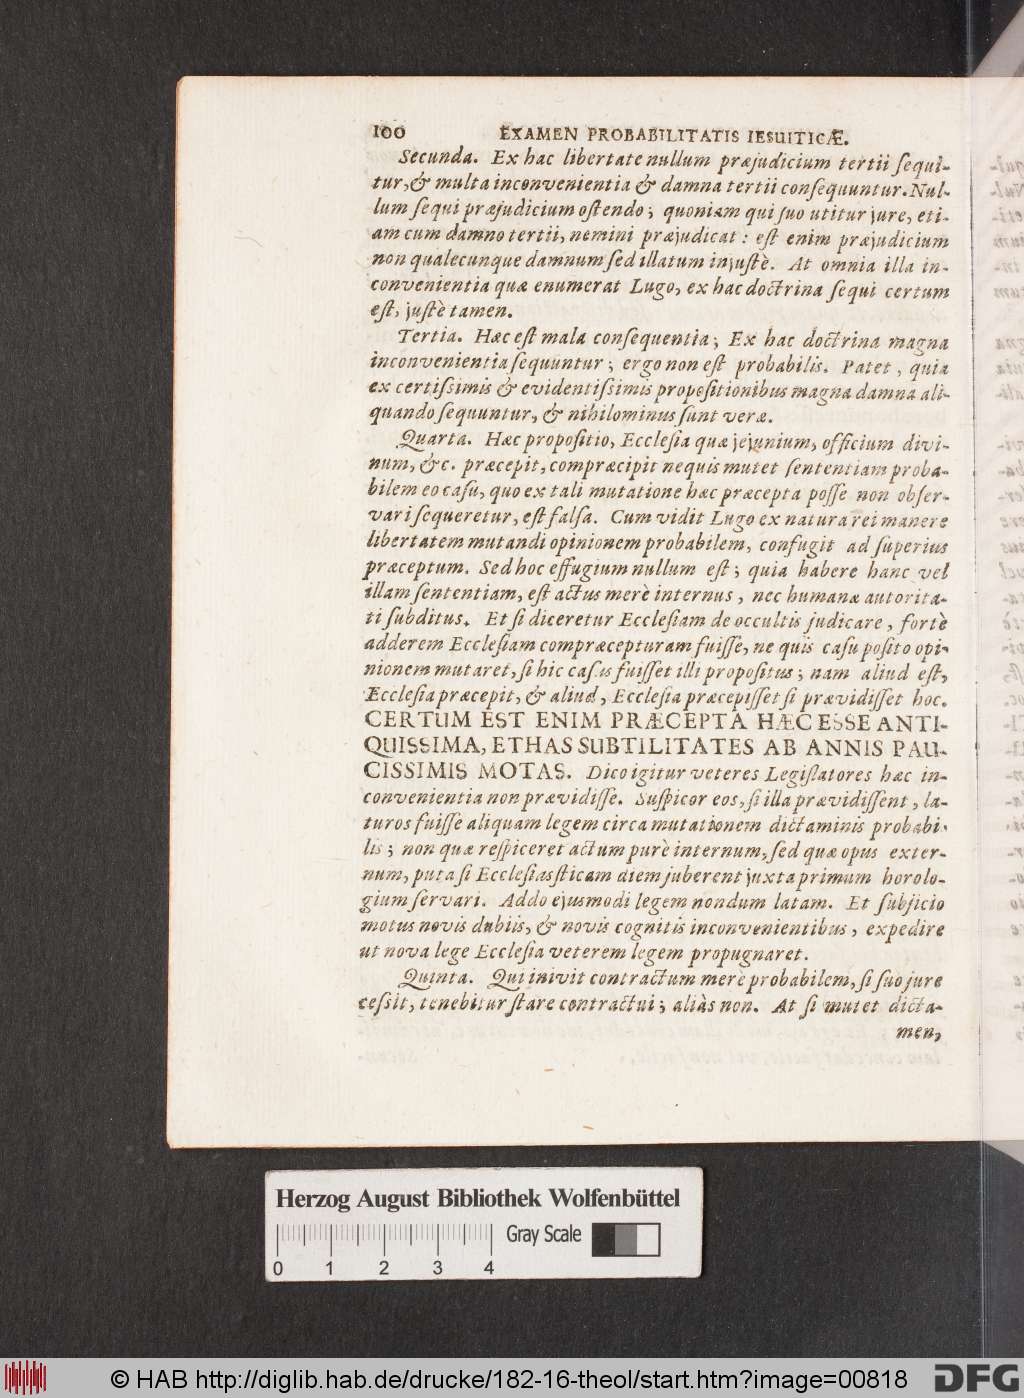 100 EXAMEN PROBABILITATIS IESUITICÆ.
Secunda. Ex hac libertate nullum præjudicium tertii ſequi-
tur, & multa inconvenientia & damna tertii conſequuntur. Nul-
lum ſequi præjudicium oſtendo; quoniam qui ſuo utitur jure, eti-
am cum damno tertii, nemini præjudicat: eſt enim præjudicium
non qualecunque damnum ſed illatum injuſtè. At omnia illa in-
convenientia quæ enumerat Lugo, ex hac doctrina ſequi certum
eſt, juſtè tamen.
Tertia. Hæc eſt mala conſequentia; Ex hac doctrina magna
inconvenientia ſequuntur; ergo non eſt probabilis. Patet, quia
ex certiſsimis & evidentiſsimis propoſitionibus magna damna ali-
quando ſequuntur, & nihilominus ſunt veræ.
Quarta. Hæc propoſitio, Eccleſia quæ jejunium, officium divi-
num, &c. præcepit, compræcipit ne quis mutet ſententiam proba-
bilem eo caſu, quo ex tali mutatione hæc præcepta poſſe non obſer-
vari ſequeretur, eſt falſa. Cum vidit Lugo ex natura rei manere
libertatem mutandi opinionem probabilem, confugit ad ſuperius
præceptum. Sed hoc effugium nullum eſt; quia habere hanc vel
illam ſententiam, eſt actus merè internus, nec humanæ autorita-
ti ſubditus. Et ſi diceretur Eccleſiam de occultis judicare, fortè
adderem Eccleſiam compræcepturam fuiſſe, ne quis caſu poſito opi-
nionem mutaret, ſi hic caſus fuiſſet illi propoſitus; nam aliud eſt,
Eccleſia præcepit, & aliud, Eccleſia præcepiſſet ſi prævidiſſet hoc.
CERTUM EST ENIM PRÆCEPTA HÆC ESSE ANTI-
QUISSIMA, ET HAS SUBTILITATES AB ANNIS PAU-
CISSIMIS MOTAS. Dico igitur veteres Legiſlatores hæc in-
convenientia non prævidiſſe. Suſpicor eos, ſi illa prævidiſſent, la-
turos fuiſſe aliquam legem circa mutationem dictaminis probabi-
lis; non quæ reſpiceret actum purè internum, ſed quæ opus exter-
num, puta ſi Eccleſiasſticam diem juberent juxta primum horolo-
gium ſervari. Addo ejusmodi legem nondum latam. Et ſubjicio
motus novis dubiis, & novis cognitis inconvenientibus, expedire
ut nova lege Eccleſia veterem legem propugnaret.
Quinta. Qui inivit contractum merè probabilem, ſi ſuo jure
ceſsit, tenebitur ſtare contractui; aliàs non. At ſi mutet dicta-
men,
Herzog August Bibliothek Wolfenbüttel
Gray Scale
0 1 2 3 4
© HAB http://diglib.hab.de/drucke/182-16-theol/start.htm?image=00818
DFG